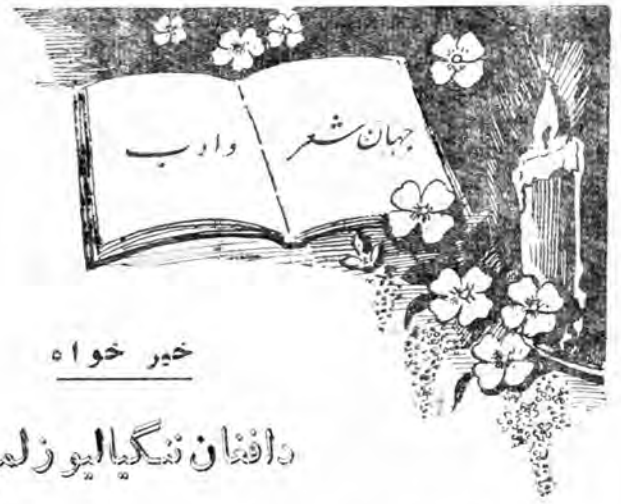 جهان شعر وادب
خیر خواه
دافغان ننگیالیو زلم